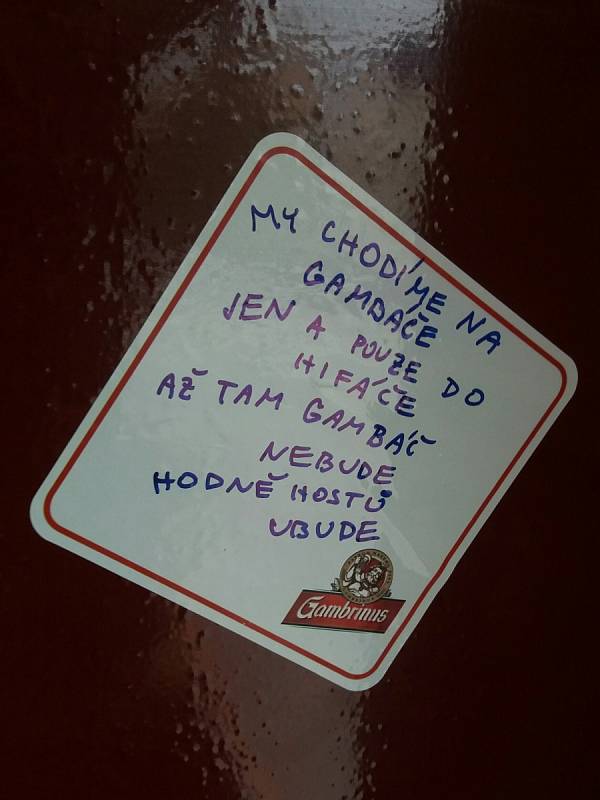 MY CHODÍME NA
GAMBAČE
JEN A POUZE DO
HIFÁČE
AŽ TAM GAMBÁČ
NEBUDE
HODNĚ HOSTŮ
UBUDE
Gambrinus